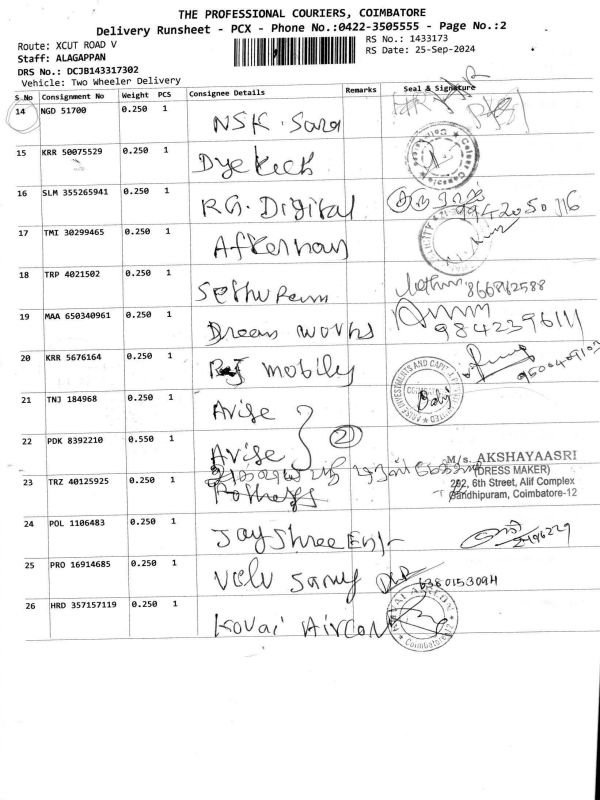 THE PROFESSIONAL COURIERS, COIMBATORE
Delivery Runsheet - PCX - Phone No.:0422-3505555 - Page No.:2
Route: XCUT ROAD V
RS No.: 1433173
Staff: ALAGAPPAN
RS Date: 25-Sep-2024
DRS No.: DCJB143317302
Vehicle: Two Wheeler Delivery
S No Consignment No Weight PCS Consignee Details Remarks Seal & Signature
14 NGD 51700 0.250 1 NSK. Sara
15 KRR 50075529 0.250 1 Dyetech
16 SLM 355265941 0.250 1 RG. Digital
17 TMI 30299465 0.250 1
18 TRP 4021502 0.250 1 Sethu Ram 8668162588
19 MAA 650340961 0.250 1 Dream works 9842396111
20 KRR 5676164 0.250 1 mobily
21 TNJ 184968 0.250 1 Arise
22 PDK 8392210 0.550 1 Arise 2
M/s. AKSHAYAASRI
(DRESS MAKER)
202, 6th Street, Alif Complex
Gandhipuram, Coimbatore-12
23 TRZ 40125925 0.250 1 Potheys
24 POL 1106483 0.250 1 Jay Shree Engr
25 PRO 16914685 0.250 1 Velu Samy 6380153094
26 HRD 357157119 0.250 1 Kovai Aircon
Coimbatore